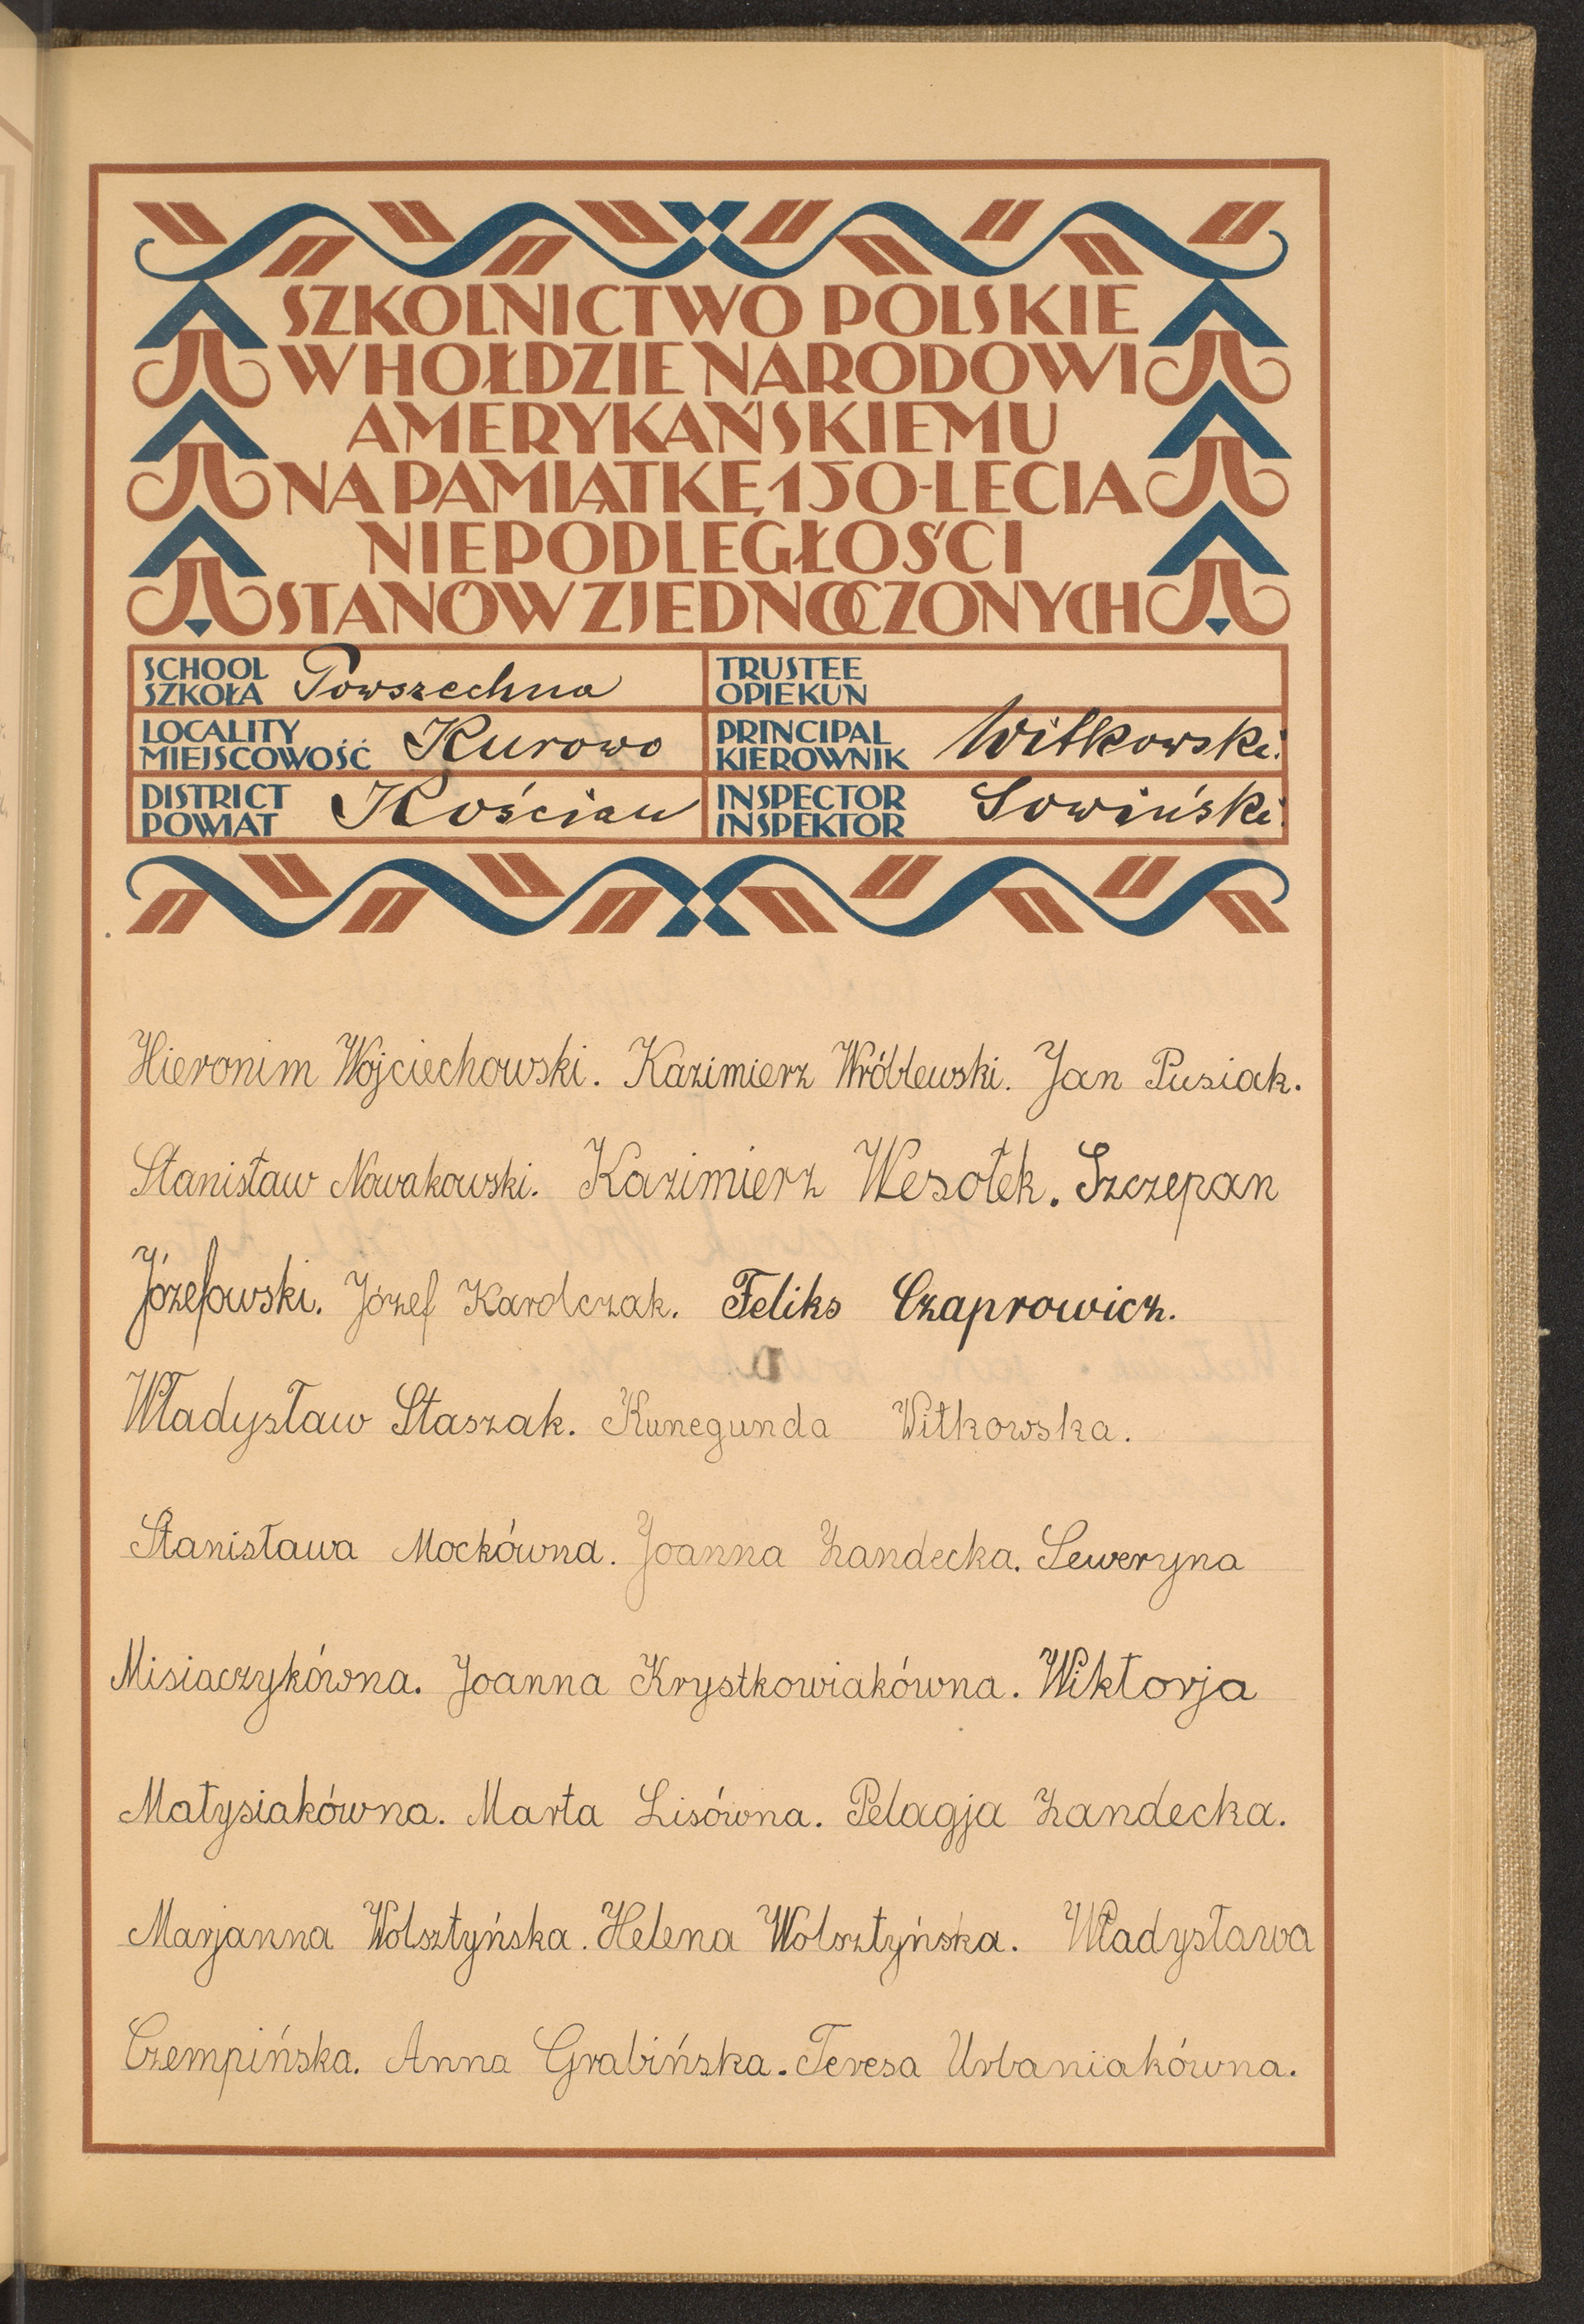 SZKOLNICTWO POLSKIE
W HOŁDZIE NARODOWI
AMERYKAŃSKIEMU
NA PAMIĄTKĘ 150-LECIA
NIEPODLEGŁOŚCI
STANÓW ZJEDNOCZONYCH
SCHOOL
SZKOŁA Powszechna
TRUSTEE
OPIEKUN
LOCALITY
MIEJSCOWOŚĆ Kurowo
PRINCIPAL
KIEROWNIK Witkowski.
DISTRICT
POWIAT Kościan
INSPECTOR
INSPEKTOR Sowiński.
Hieronim Wojciechowski. Kazimierz Wróblewski. Jan Pusiak.
Stanisław Nowakowski. Kazimierz Wesołek. Szczepan
Józefowski. Józef Karolczak. Feliks Czaprowicz.
Władysław Staszak. Kunegunda Witkowska.
Stanisława Mockówna. Joanna Żandecka. Seweryna
Misiaczykówna. Joanna Krystkowiakówna. Wiktorja
Matysiakówna. Marta Lisówna. Pelagja Żandecka.
Marjanna Wolsztyńska. Helena Wolsztyńska. Władysława
Czempińska. Anna Grabińska. Teresa Urbaniakówna.